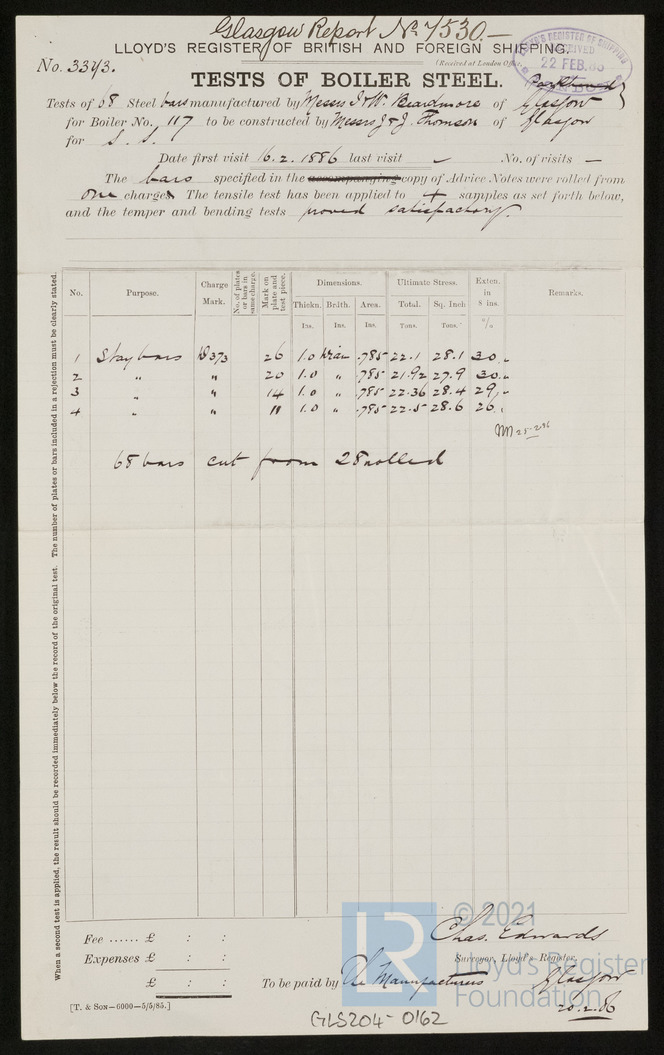 Glasgow Report No. 7530.—
LLOYD'S REGISTER OF BRITISH AND FOREIGN SHIPPING.
No. 3343. (Received at London Office
LLOYD'S REGISTER OF SHIPPING
RECEIVED
22 FEB. 86
TESTS OF BOILER STEEL.
Tests of 68 Steel bars manufactured by Messrs I & W. Beardmore of Glasgow
for Boiler No. 117 to be constructed by Messrs J & J. Thomson of Glasgow
for S. S.
Date first visit 16.2.1886 last visit — No. of visits —
The bars specified in the accompanying copy of Advice Notes were rolled from
one charges. The tensile test has been applied to 4 samples as set forth below,
and the temper and bending tests proved satisfactory.
No. Purpose. Charge Mark. No. of plates or bars in same charge. Mark on plate and test piece. Dimensions. Ultimate Stress. Exten. in 8 ins. Remarks.
Thickn. Brdth. Area. Total. Sq. Inch
Ins. Ins. Ins. Tons. Tons. %
1 Stay bars 373 26 1.0 diam .785 22.1 28.1 30 "
2 " " 20 1.0 " .785 21.92 27.9 30 "
3 " " 14 1.0 " .785 22.36 28.4 29 "
4 " " 11 1.0 " .785 22.5 28.6 26 "
25.2.86
68 bars cut from 28 rolled
When a second test is applied, the result should be recorded immediately below the record of the original test. The number of plates or bars included in a rejection must be clearly stated.
© 2021
LR
Lloyd's Register
Foundation
Chas. Edwards
Fee ...... £ : :
Surveyor, Lloyd's Register,
Expenses £ : :
£ : : To be paid by The Manufacturers Glasgow
20.2.86
[T. & Son—6000—5/5/85.]
GLS204-0162